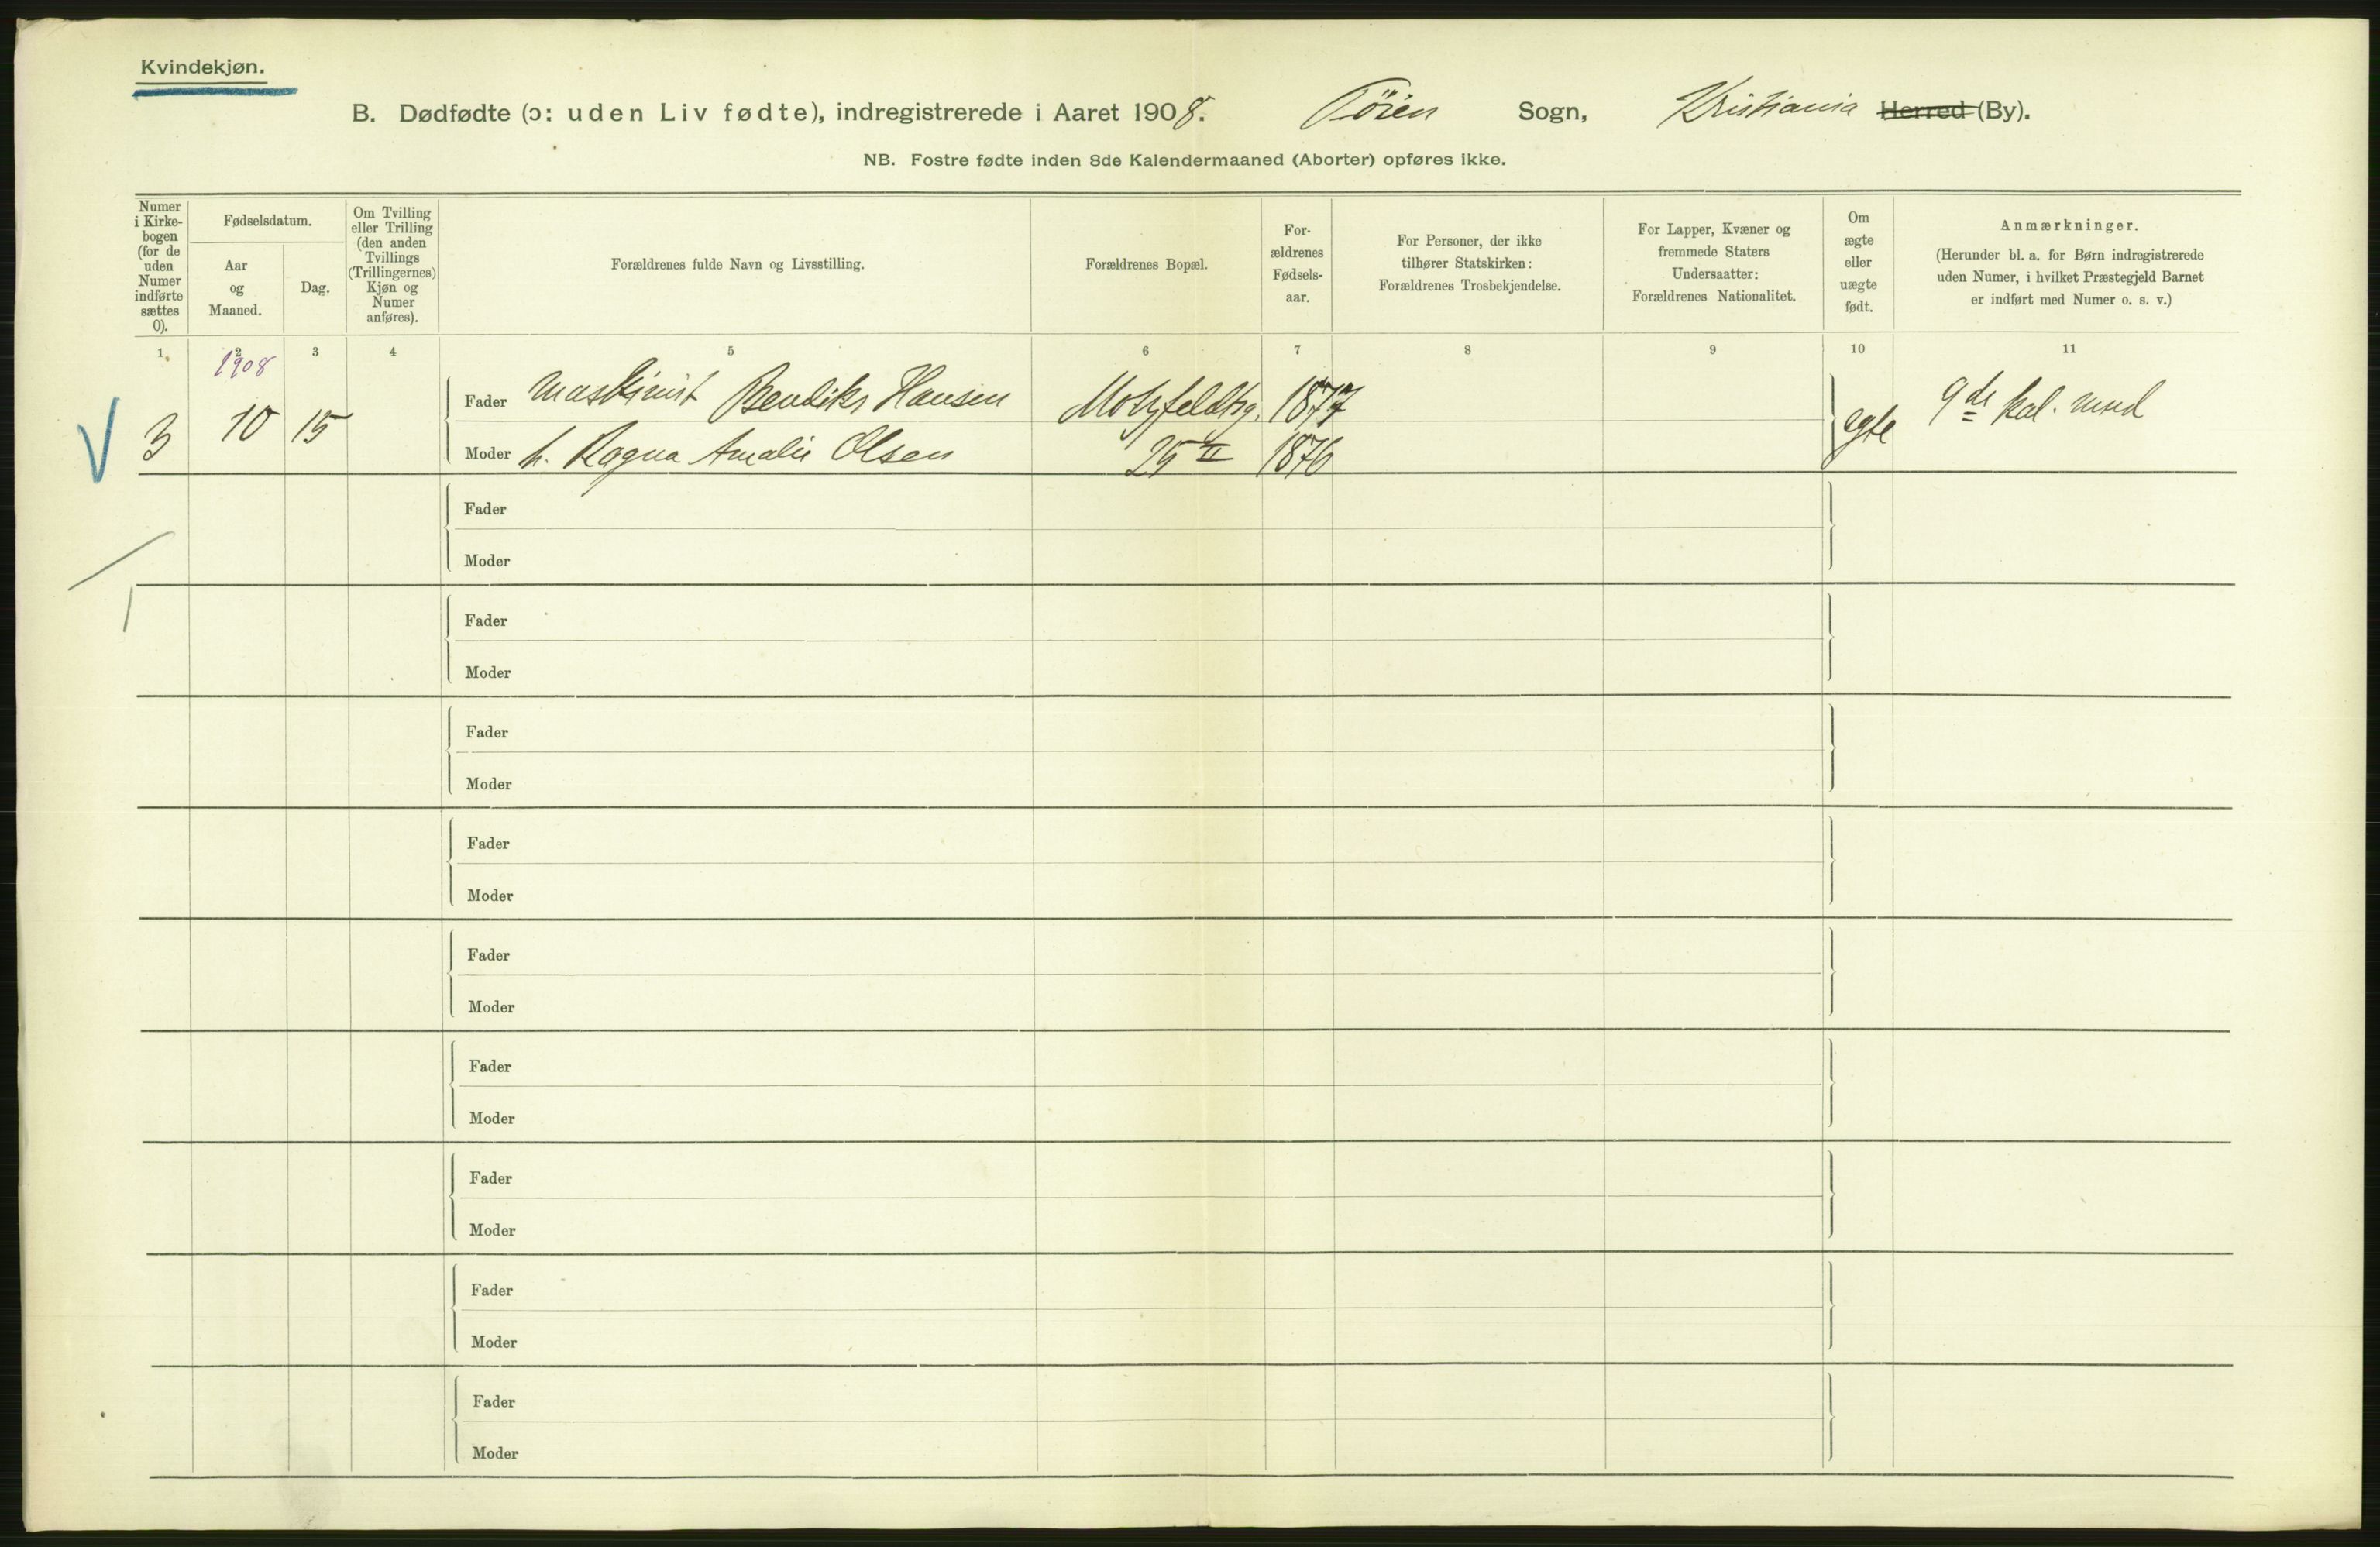 Kvindekjøn.
B. Dødfødte (ɔ: uden Liv fødte), indregistrerede i Aaret 1908. Töien Sogn, Kristiania Herred (By).
NB. Fostre fødte inden 8de Kalendermaaned (Aborter) opføres ikke.
Numer i Kirke-bogen (for de uden Numer indførte sættes 0).
Fødselsdatum.
Aar og Maaned.
Dag.
Om Tvilling eller Trilling (den anden Tvillings (Trillingernes) Kjøn og Numer anføres).
Forældrenes fulde Navn og Livsstilling.
Forældrenes Bopæl.
For-ældrenes Fødsels-aar.
For Personer, der ikke tilhører Statskirken: Forældrenes Trosbekjendelse.
For Lapper, Kvæner og fremmede Staters Undersaatter: Forældrenes Nationalitet.
Om ægte eller uægte født.
Anmærkninger.
(Herunder bl. a. for Børn indregistrerede uden Numer, i hvilket Præstegjeld Barnet er indført med Numer o. s. v.)
1 2 3 4 5 6 7 8 9 10 11
1908
Fader Maskinist Bendiks Hansen Motzfeldtsg. 1877
3 10 15 ægte 9de kal. mnd
Moder h. Ragna Amalie Olsen 25 II 1876
Fader
Moder
Fader
Moder
Fader
Moder
Fader
Moder
Fader
Moder
Fader
Moder
Fader
Moder
Fader
Moder
Fader
Moder